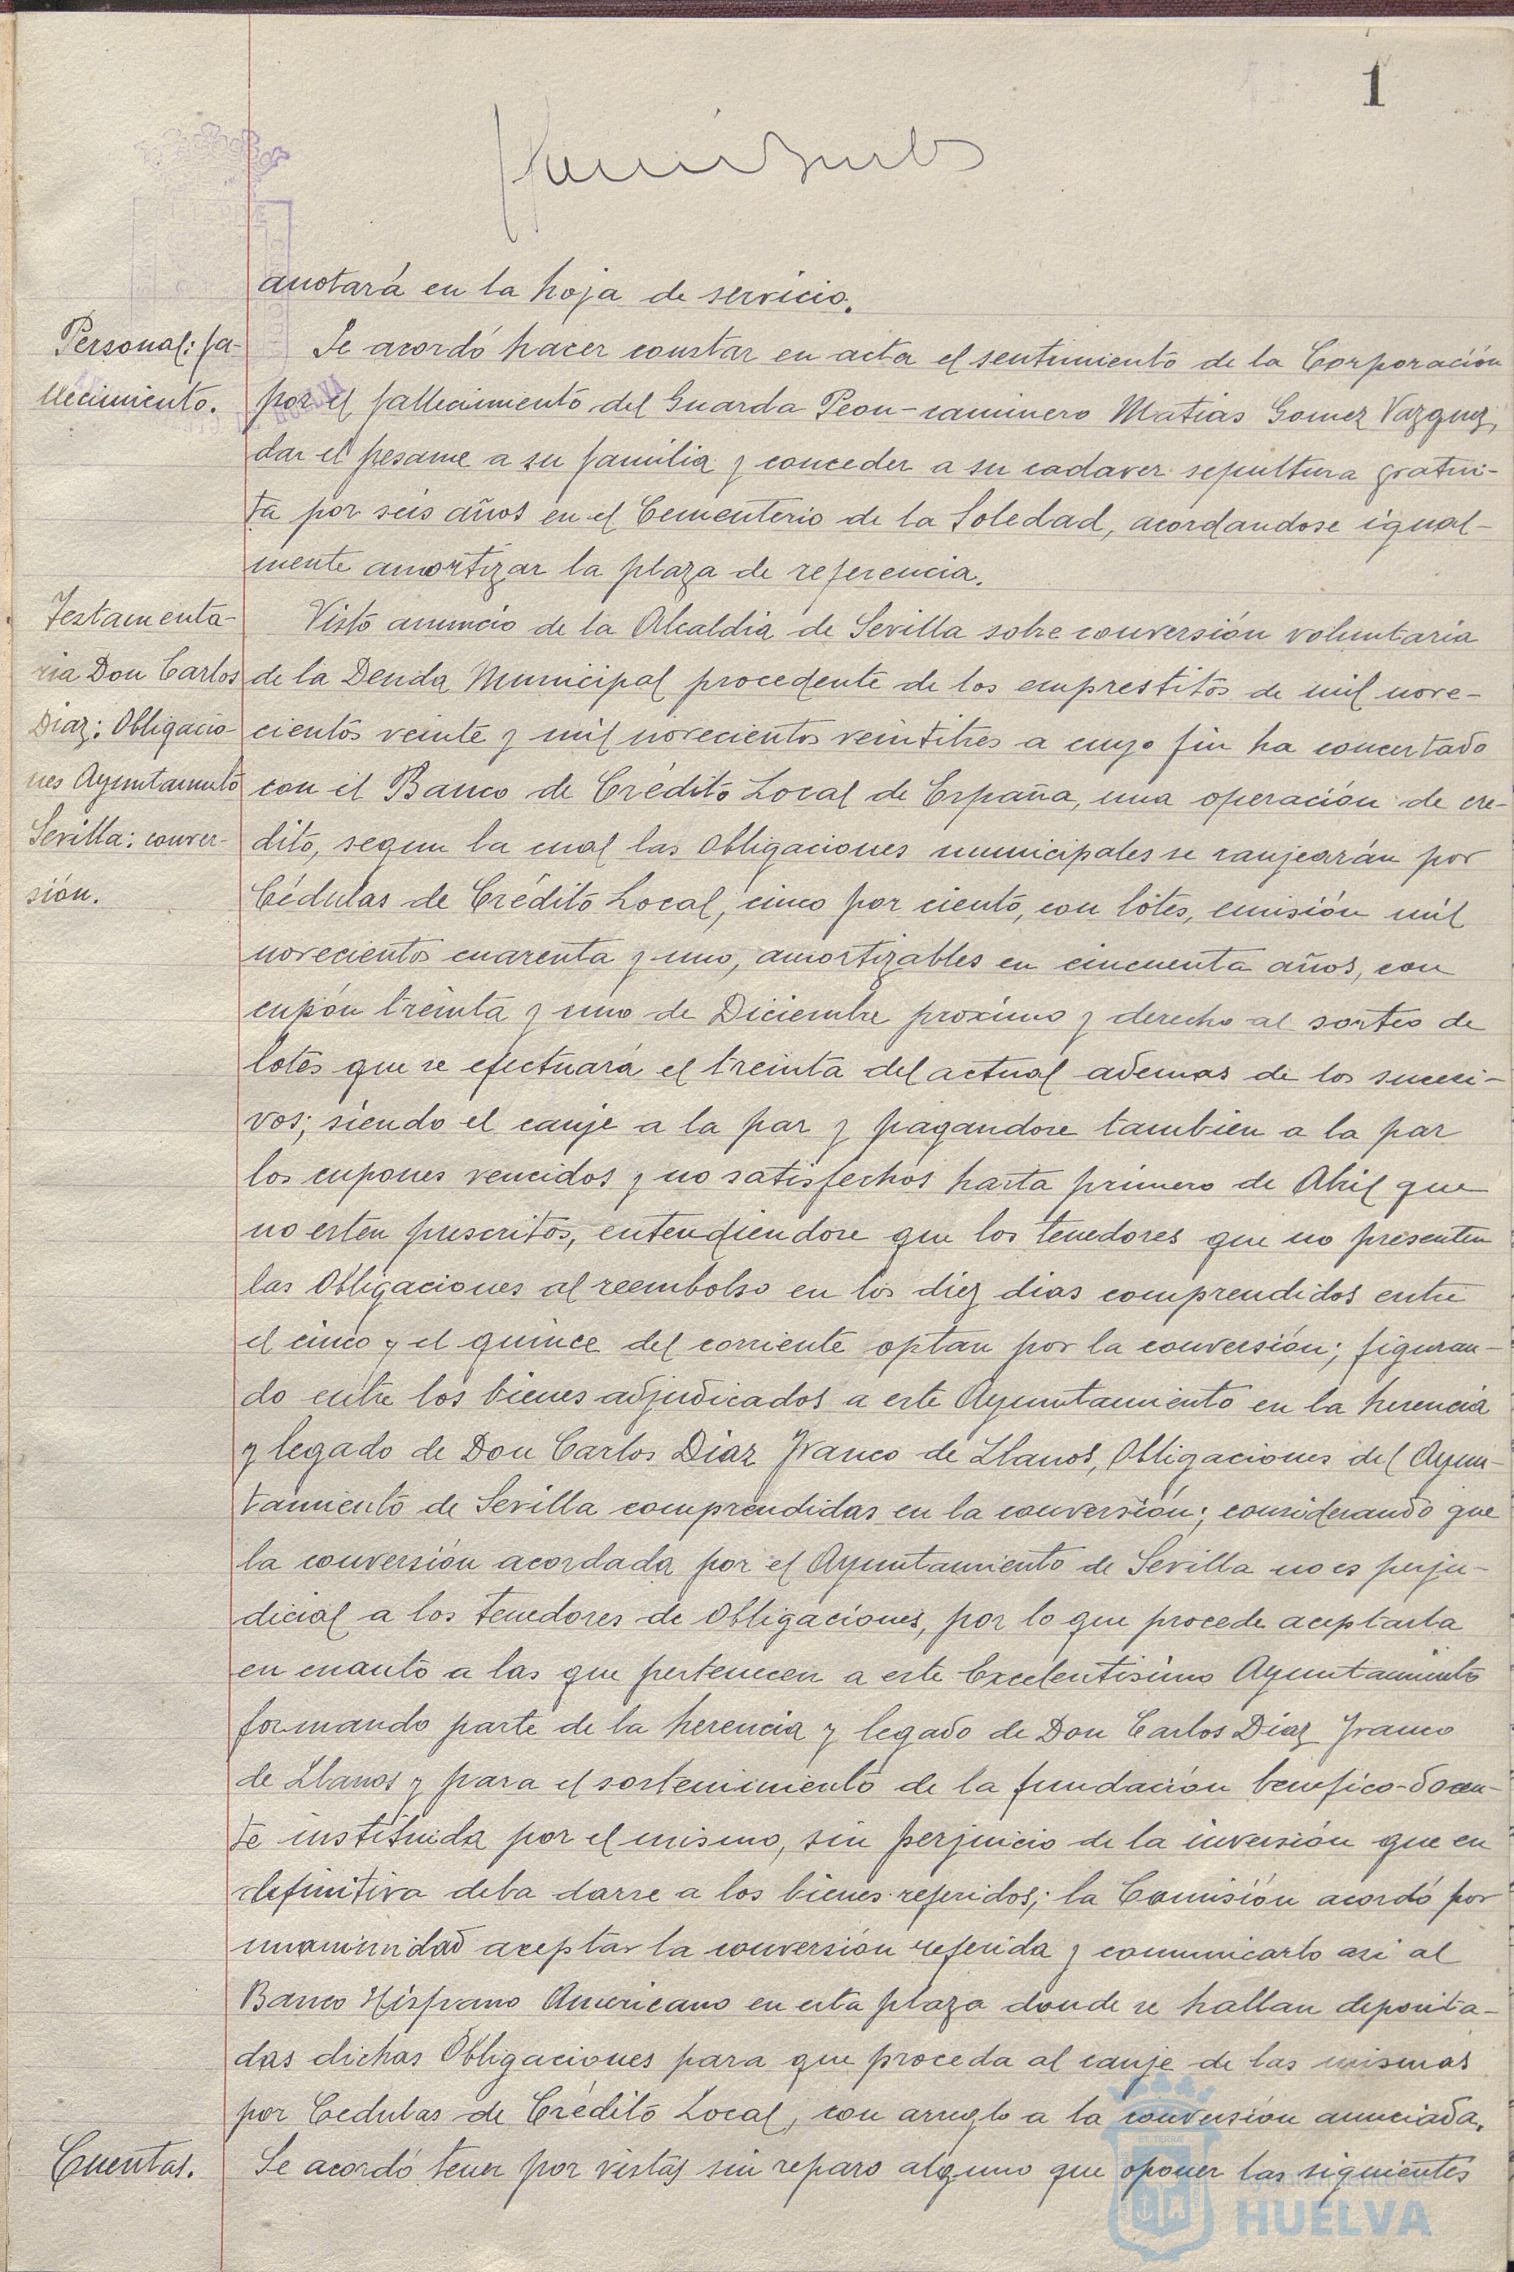 1
anotará en la hoja de servicio.
Personal: fa-
llecimiento.
Se acordó hacer constar en acta el sentimiento de la Corporación
por el fallecimiento del Guarda Peon-caminero Matias Gomez Vazquez,
dar el pesame a su familia y conceder a su cadaver sepultura gratui-
ta por seis años en el Cementerio de la Soledad, acordandose igual-
mente amortizar la plaza de referencia.
Testamenta-
ria Don Carlos
Diaz: Obligacio-
nes Ayuntamtº
Sevilla: conver-
sión.
Visto anuncio de la Alcaldia de Sevilla sobre conversión voluntaria
de la Deuda Municipal procedente de los emprestitos de mil nove-
cientos veinte y mil novecientos veintitres a cuyo fin ha concertado
con el Banco de Crédito Local de España, una operación de cre-
dito, segun la cual las Obligaciones municipales se canjearán por
Cédulas de Crédito Local, cinco por ciento, con lotes, emisión mil
novecientos cuarenta y uno, amortizables en cincuenta años, con
cupón treinta y uno de Diciembre proximo y derecho al sorteo de
lotes que se efectuará el treinta del actual ademas de los sucesi-
vos; siendo el canje a la par y pagandose tambien a la par
los cupones vencidos y no satisfechos hasta primero de Abril que
no esten prescritos, entendiendose que los tenedores que no presenten
las Obligaciones al reembolso en los diez dias comprendidos entre
el cinco y el quince del corriente optan por la conversión; figuran-
do entre los bienes adjudicados a este Ayuntamiento en la herencia
y legado de Don Carlos Diaz Franco de Llanos, Obligaciones del Ayun-
tamiento de Sevilla comprendidas en la conversión; considerando que
la conversión acordada por el Ayuntamiento de Sevilla no es perju-
dicial a los tenedores de Obligaciones, por lo que procede aceptarla
en cuanto a las que pertenecen a este Excelentisimo Ayuntamiento
formando parte de la herencia y legado de Don Carlos Diaz Franco
de Llanos y para el sostenimiento de la fundación benefico-docen-
te instituida por el mismo, sin perjuicio de la inversión que en
definitiva deba darse a los bienes referidos; la Comisión acordó por
unanimidad aceptar la conversión referida y comunicarlo asi al
Banco Hispano Americano en esta plaza donde se hallan deposita-
das dichas Obligaciones para que proceda al canje de las mismas
por Cedulas de Crédito Local, con arreglo a la conversión anunciada.
Cuentas.
Se acordó tener por vistas sin reparo alguno que oponer las siguientes
Ayuntamiento de
HUELVA